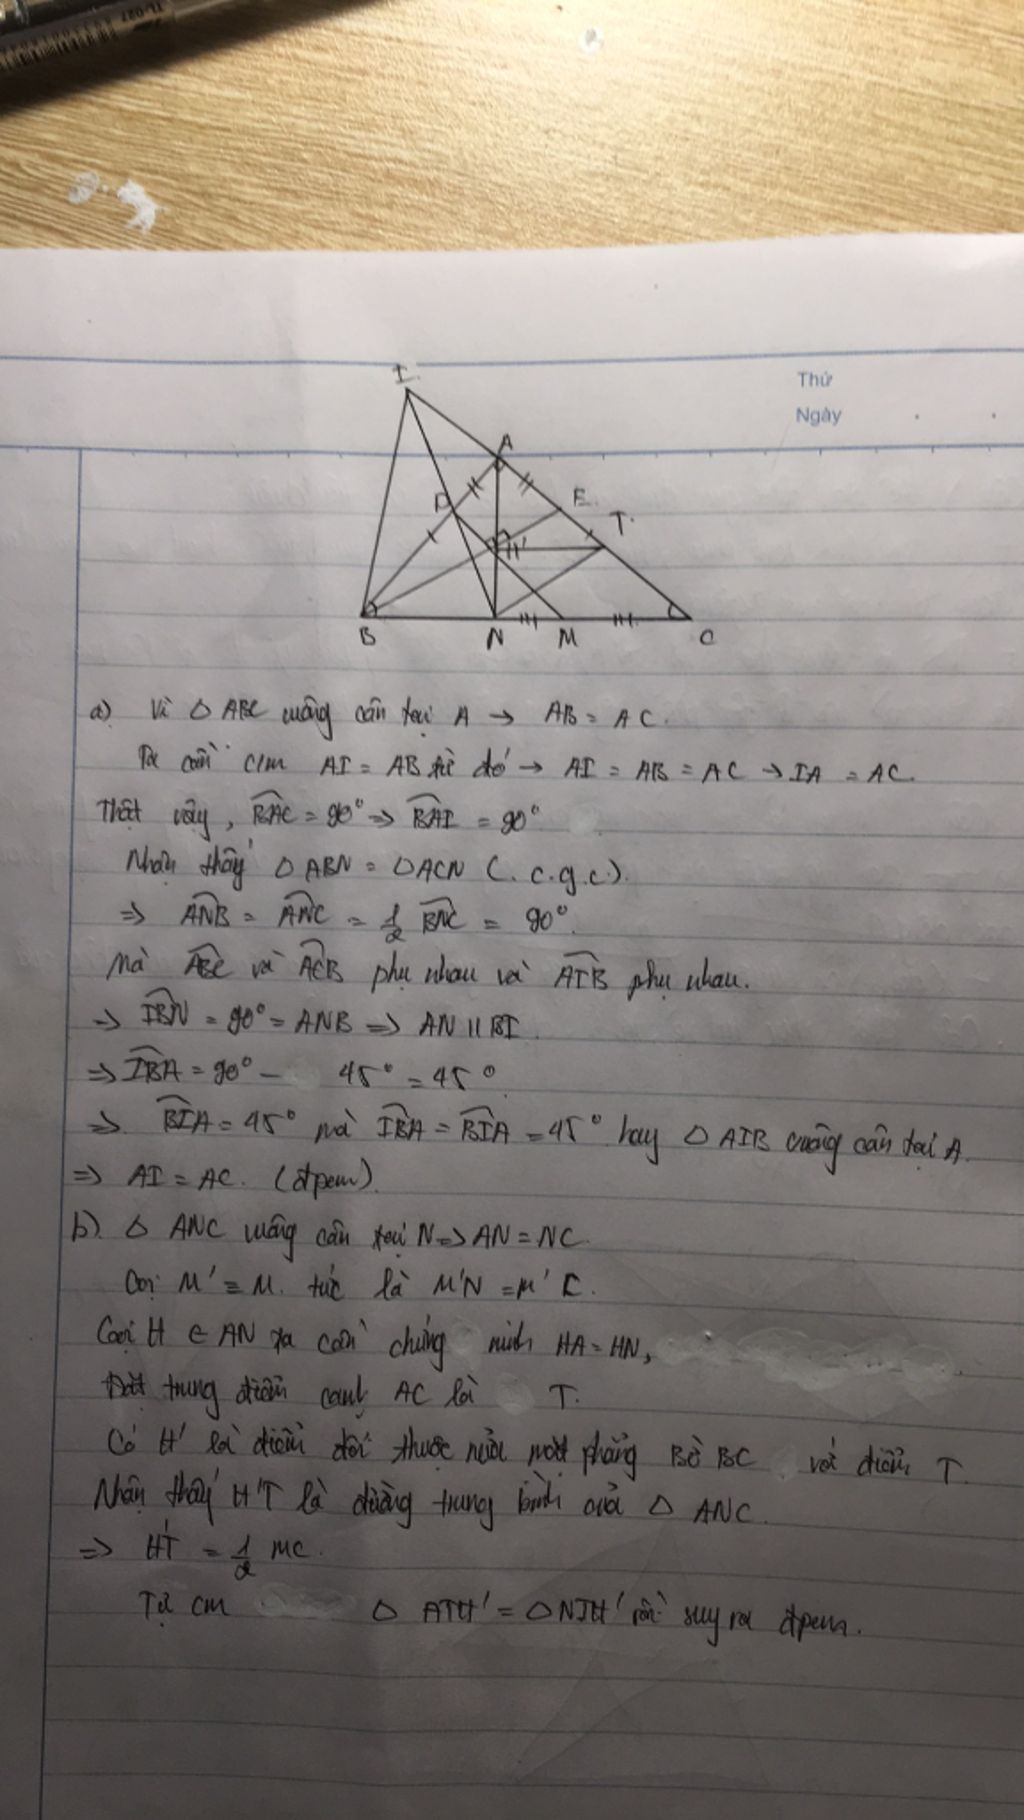 TL-027
Thứ
Ngày
I
A
D
E
T
H'
B
N
M
C
a) Vì △ ABC vuông cân tại A → AB = AC.
Ta cần c/m AI = AB từ đó → AI = AB = AC → IA = AC.
Thật vậy, BAC = 90° => BAI = 90°
Nhận thấy △ ABN = △ACN (.c.g.c).
=> ANB = ANC = 1/2 BNC = 90°.
Mà ABC và ACB phụ nhau và AIB phụ nhau.
=> IBN = 90° = ANB => AN // BI.
=> IBA = 90° - 45° = 45°
=> BIA = 45° mà IBA = BIA = 45° hay △ AIB vuông cân tại A.
=> AI = AC. (đpcm)
b). △ ANC vuông cân tại N => AN = NC.
Gọi M' ≡ M. tức là M'N = M'C.
Gọi H ∈ AN ta cần chứng minh HA = HN,
Đặt trung điểm cạnh AC là T.
Có H' là điểm đối thuộc nửa mặt phẳng Bờ BC với điểm T.
Nhận thấy H'T là đường trung bình của △ ANC.
=> H'T = 1/2 MC.
Tự cm △ ATH' = △NTH' rồi suy ra đpcm.